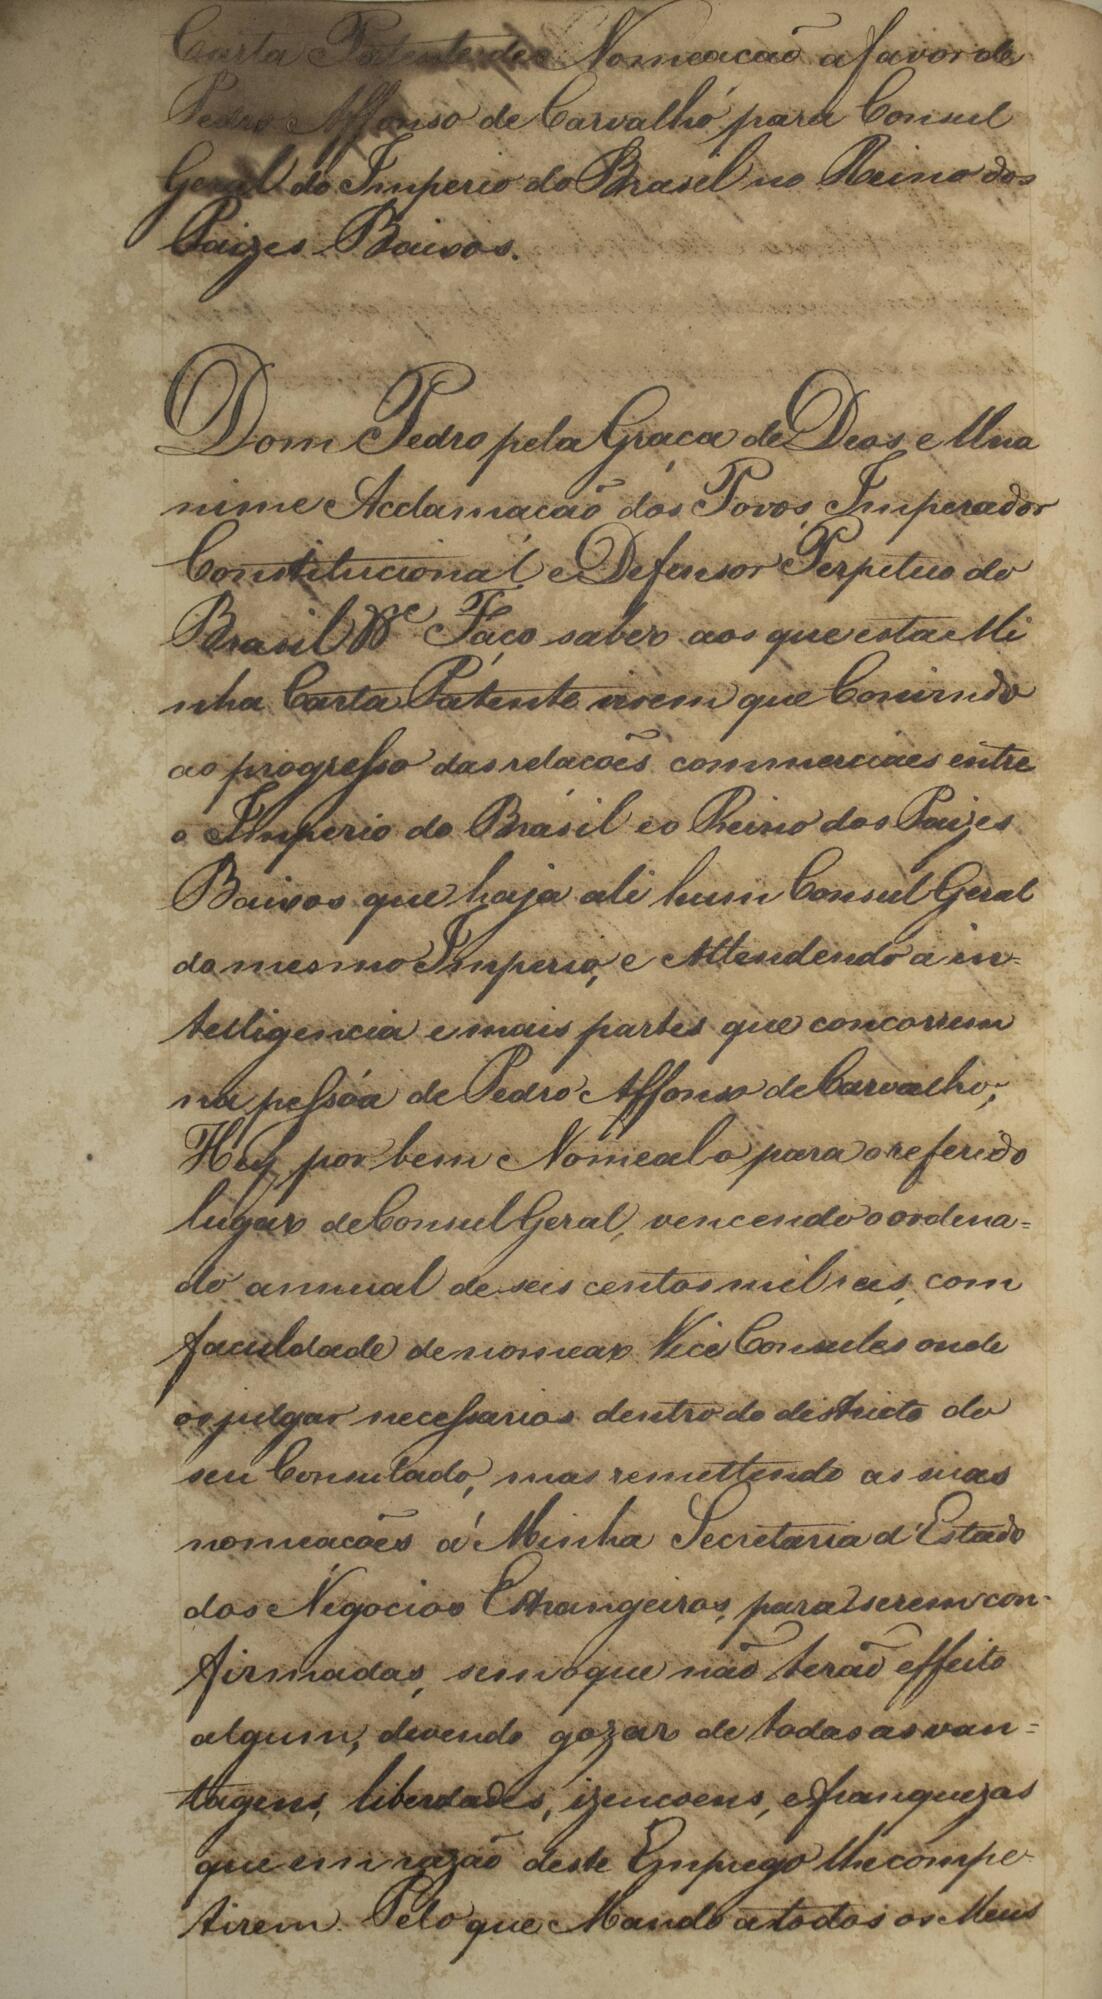 Carta Patente de Nomeacaõ a favor de
Pedro Affonso de Carvalho para Consul
Geral do Imperio do Brasil no Reino dos
Paizes Baixos.
Dom Pedro pela Graça de Deos e Una
nime Acclamacaõ dos Povos, Imperador
Constitucional e Defensor Perpetuo do
Brasil &c Faço saber aos que esta Mi
nha Carta Patente virem que Convindo
ao progresso das relacoẽs commerciaes entre
o Imperio do Brasil e o Reino dos Paizes
Baixos que haja ali hum Consul Geral
do mesmo Imperio, e Attendendo a in=
telligencia e mais partes que concorrem
na pessôa de Pedro Affonso de Carvalho;
Hey por bem Nomealo para o referido
lugar de Consul Geral, vencendo o ordena=
do annual de seis centos mil reis, com
faculdade de nomear Vice Consules onde
os julgar necessarios dentro do districto do
seu Consulado, mas remettendo as suas
nomeacoẽs á Minha Secretaria d'Estado
dos Negocios Estrangeiros, para serem con-
firmadas, sem o que naõ teraõ effeito
algum; devendo gozar de todas as van=
tagens, liberdades, izencoens, e franquezas
que em razaõ deste Emprego lhe compe
tirem. Pelo que Mando a todos os Meus